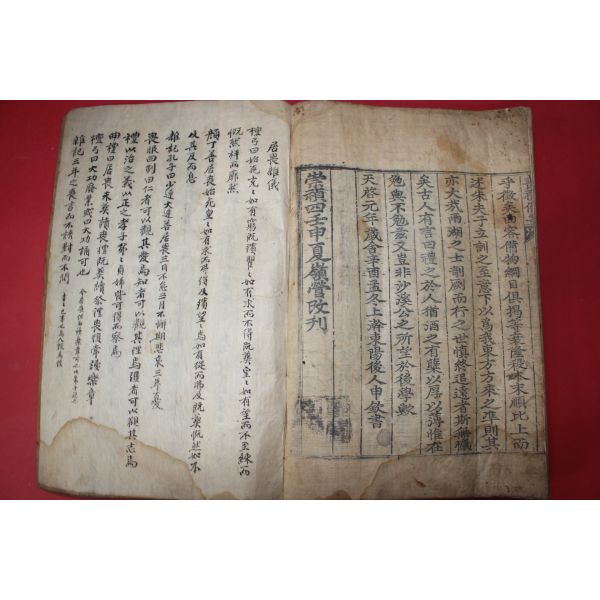 乎微矣而容備物綱目俱擧等衰隆殺本末順比上而
述朱夫子立訓之至意下以爲我東方方來之準則其
亦大哉兩湖之士剞劂而行之世愼終追遠者斯無憾
矣古人有言曰禮之於人猶酒之有蘖以厚以薄惟在
勉與不勉玆又豈非沙溪公之所望於後學歟
天啓元年歲舍辛酉孟冬上澣東陽後人申欽書
崇禎四壬申夏嶺營改刊
居喪雜儀
檀弓曰始死充〻如有窮旣殯瞿〻如有求而不得旣葬皇〻如有望而不至練而
慨然祥而廓然
顔丁善居喪始死皇〻如有求而不得及殯望〻焉如有從而弗及旣葬慨然如不
及其反而息
雜記孔子曰少連大連善居喪三日不怠三月不懈期悲哀三年憂
喪服四制曰仁者可以觀其愛焉知者可以觀其理焉彊者可以觀其志焉
禮以治之義以正之孝子弟〻貞婦皆可得而察焉
曲禮曰居喪未葬讀喪禮旣葬讀祭禮喪復常讀樂章
檀弓曰大功廢業或曰大功誦可也
雜記三年之喪言而不語對而不問